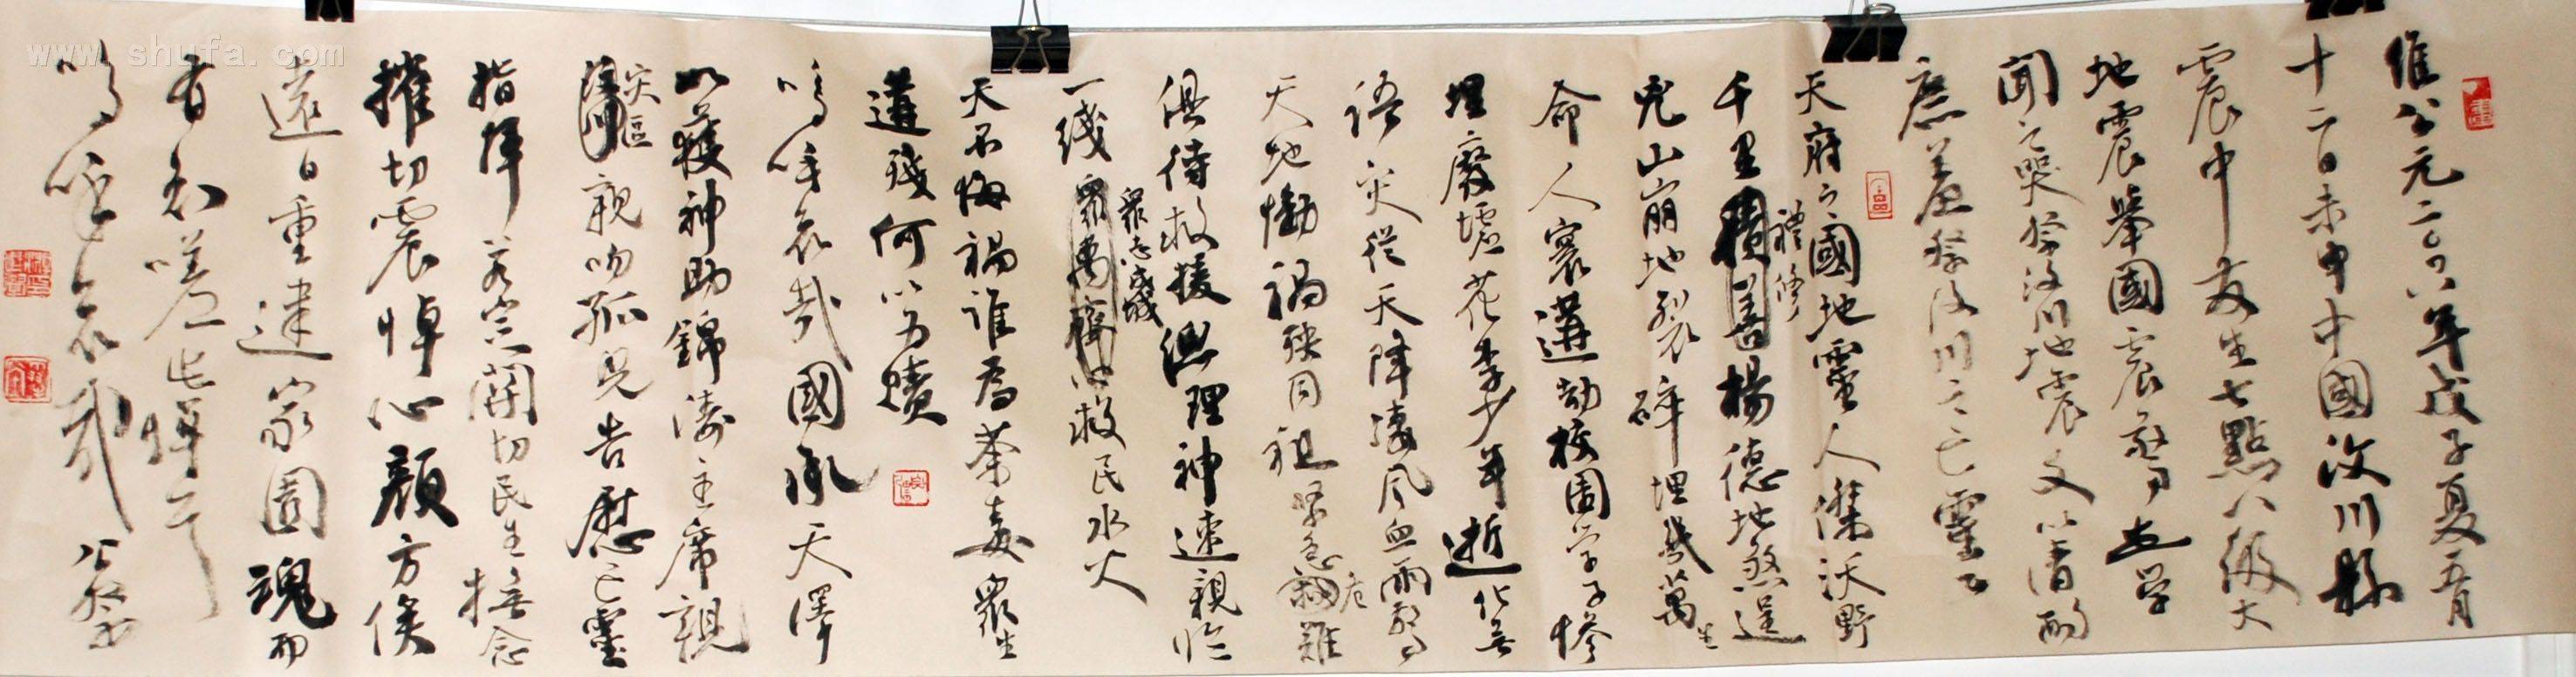 維公元二〇〇八年戊子夏五月
十二日未申中國汶川縣
震中發生七點八級大
地震舉國震驚
聞之哭祭汶川地震文以清酌
庶羞祭汶川之亡靈
天府之國地靈人傑沃野
千里積善揚德地煞逞
禮修
兇山崩地裂碎埋幾萬生
命人寰遘劫校園学子慘
埋廢墟花季少年逝化無
語灾從天降凄風血雨驚
天地慟禍殃同祖緊急難
危
俱待救援總理神速親臨
一綫眾萬齊以救民水火
眾志成城
天不悔禍誰為荼毒眾生
遘殘何以為贖
嗚呼哀哉國承天澤
以獲神助錦濤主席親
親吻孤兒告慰亡靈
灾區
指揮關切民生撫念
摧切震悼心顏方俟
遠日重建家園魂而
有知嗟悼
嗚呼哀哉公祭
www.shufa.com